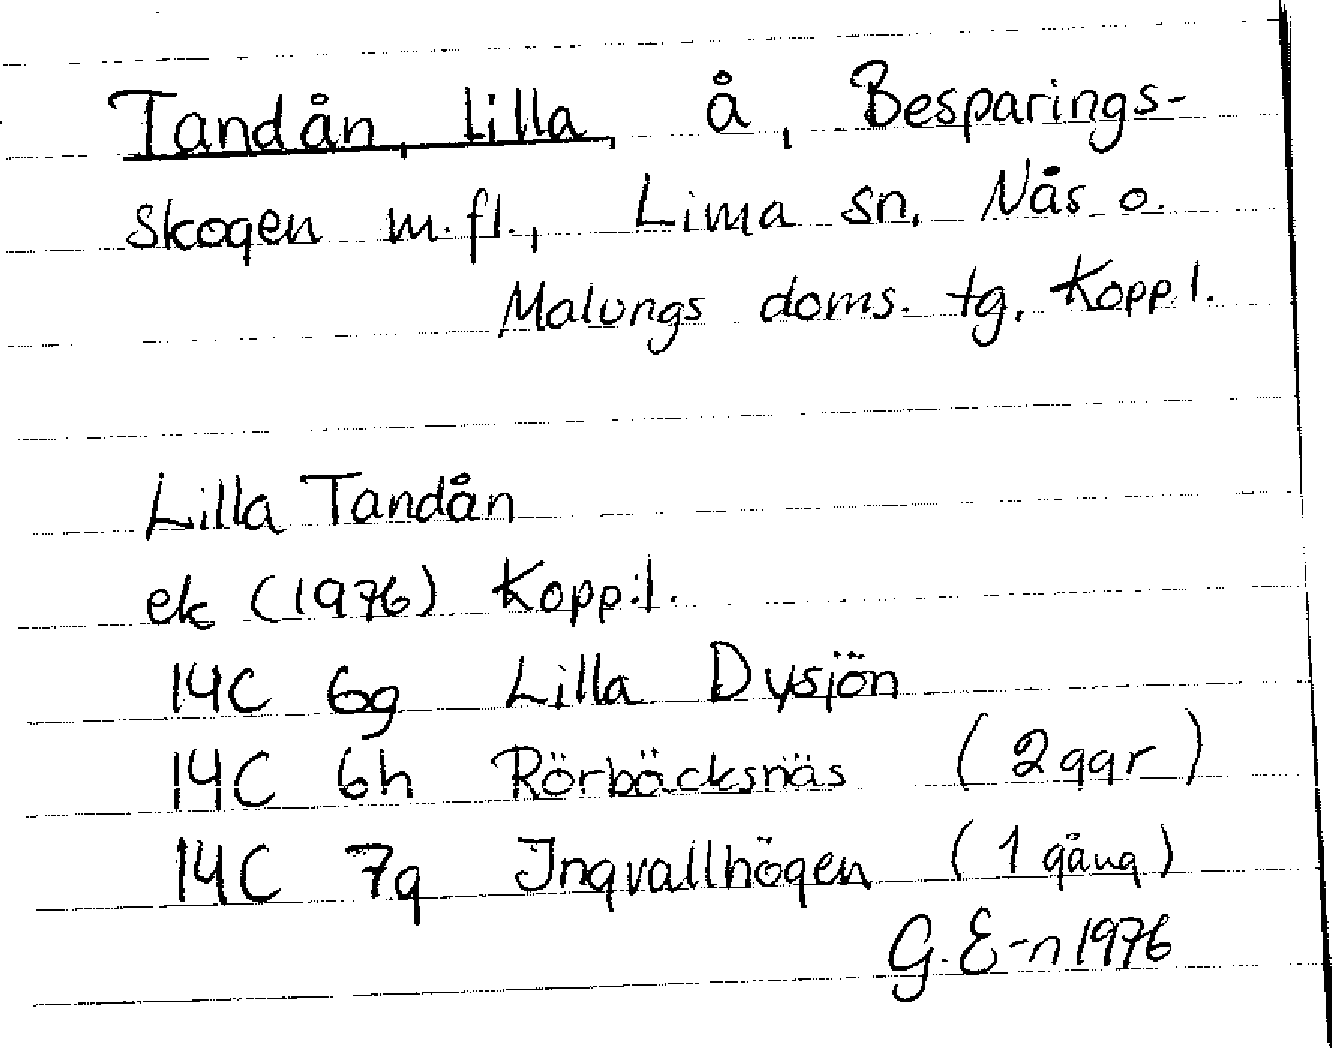 Tandån, Lilla, å, Besparings-
skogen m.fl., Lima sn. Nås o.
Malungs doms. tg, Kopp.l.
Lilla Tandån
ek (1976) Kopp:l.
14C 6g Lilla Dysjön
14C 6h Rörbäcksnäs (2 ggr)
14C 7g Ingvallhögen (1 gång)
G. E-n 1976